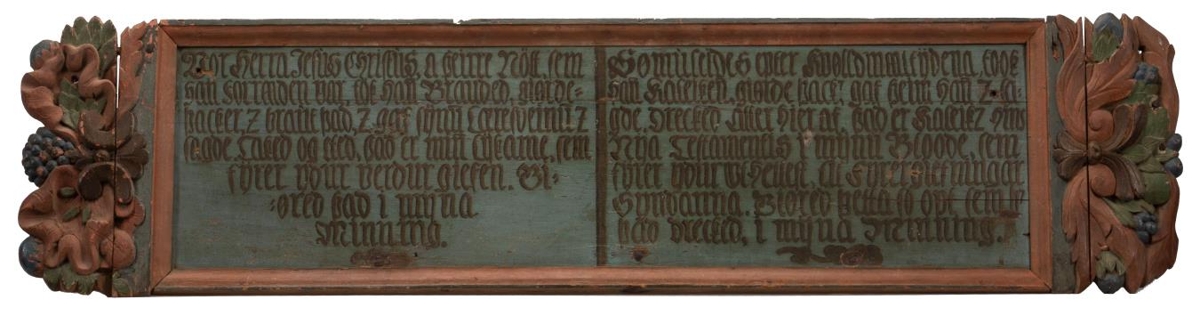 Vor Herra Jesus Christus, a þeirre Nött sem
han forraden var, tök han Brauded, giorde-
þacker, z braut þad, z gaf synum Læresveinū, z
sagde. Taked og eted, þad er min Lijkame, sem
fyrer ydur verdur giefen. Gi-
øred þad i mijna
Minning.
Somuleides epter kvølldmaaltijdena, took
han Kaleiken, giorde þacker, gaf þeim han z sa-
gde. Drecked. Aller hier af, þad er Kaleikz hins
Nyja Testamentis i mijnu Bloode, sem
fyrer ydur til Fyrergiefningar
Syndanna. Giøred þetta so opt sem
þad drecked, i mijna Minning.